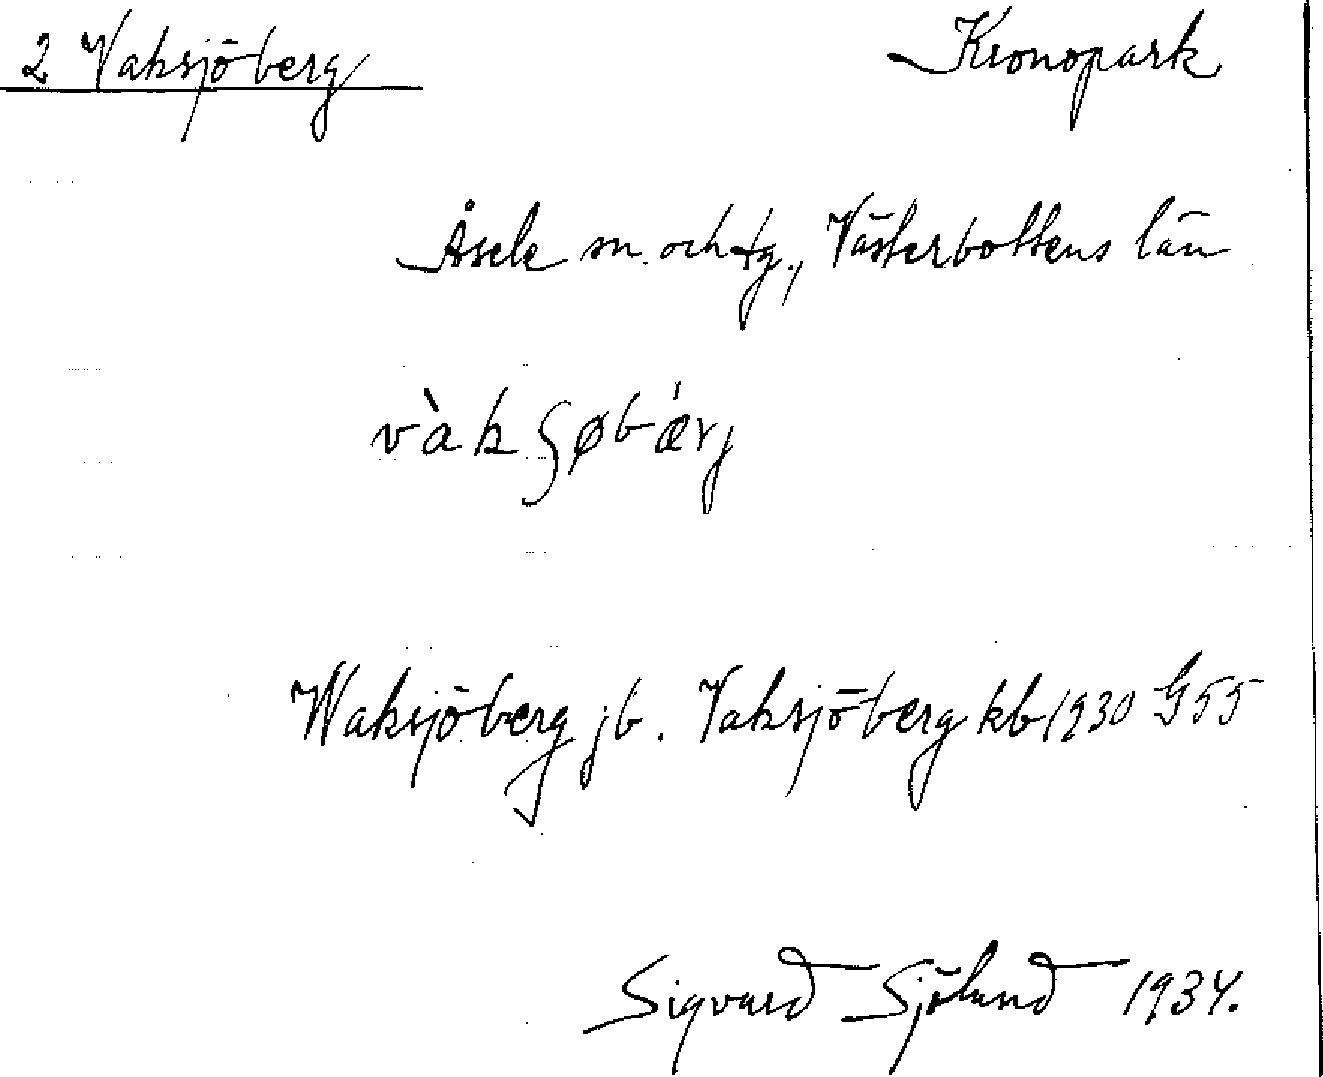 2 Vaksjöberg Kronopark
Åsele sn. och tg., Västerbottens län
vàkʂøbǽrj
Waksjöberg jb. Vaksjöberg kb 1930 G 55
Sigvard Sjölund 1934.